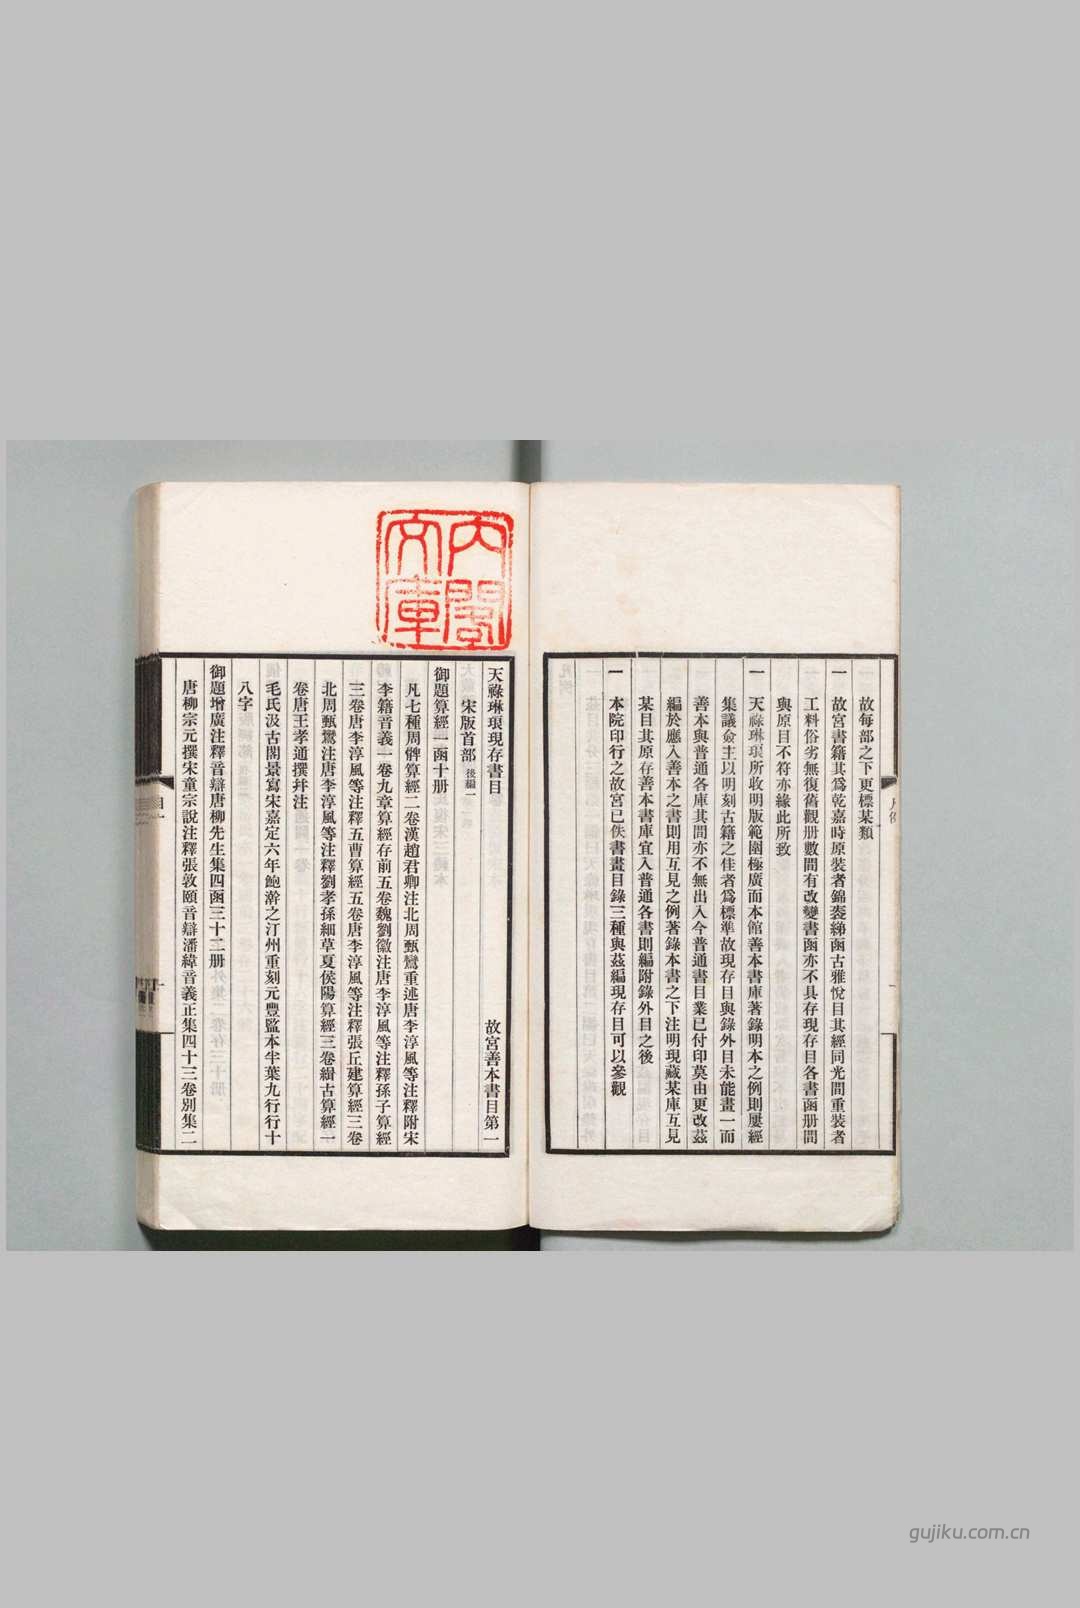 故每部之下更標某類
一 故宮書籍其爲乾嘉時原裝者錦褧綈函古雅悅目其經同光間重裝者
工料俗劣無復舊觀册數間有改變書函亦不具存現存目各書函册間
與原目不符亦緣此所致
一 天祿琳琅所收明版範圍極廣而本館善本書庫著錄明本之例則屢經
集議僉主以明刻古籍之佳者爲標準故現存目與錄外目未能畫一而
善本與普通各庫其間亦不無出入今普通書目業已付印莫由更改茲
編於應入善本之書則用互見之例著錄本書之下注明現藏某庫互見
某目其原存善本書庫宜入普通各書則編附錄外目之後
一 本院印行之故宮已佚書畫目錄三種與茲編現存目可以參觀
內閣
文庫
天祿琳琅現存書目 故宮善本書目第一
宋版首部 後編一
御題算經一函十册
凡七種周髀算經二卷漢趙君卿注北周甄鸞重述唐李淳風等注釋附宋
李籍音義一卷九章算經存前五卷魏劉徽注唐李淳風等注釋孫子算經
三卷唐李淳風等注釋五曹算經五卷唐李淳風等注釋張丘建算經三卷
北周甄鸞注唐李淳風等注釋劉孝孫細草夏侯陽算經三卷緝古算經一
卷唐王孝通撰幷注
毛氏汲古閣景寫宋嘉定六年鮑澣之汀州重刻元豐監本半葉九行行十
八字
御題增廣注釋音辯唐柳先生集四函三十二册
唐柳宗元撰宋童宗說注釋張敦頤音辯潘緯音義正集四十三卷別集二
gujiku.com.cn